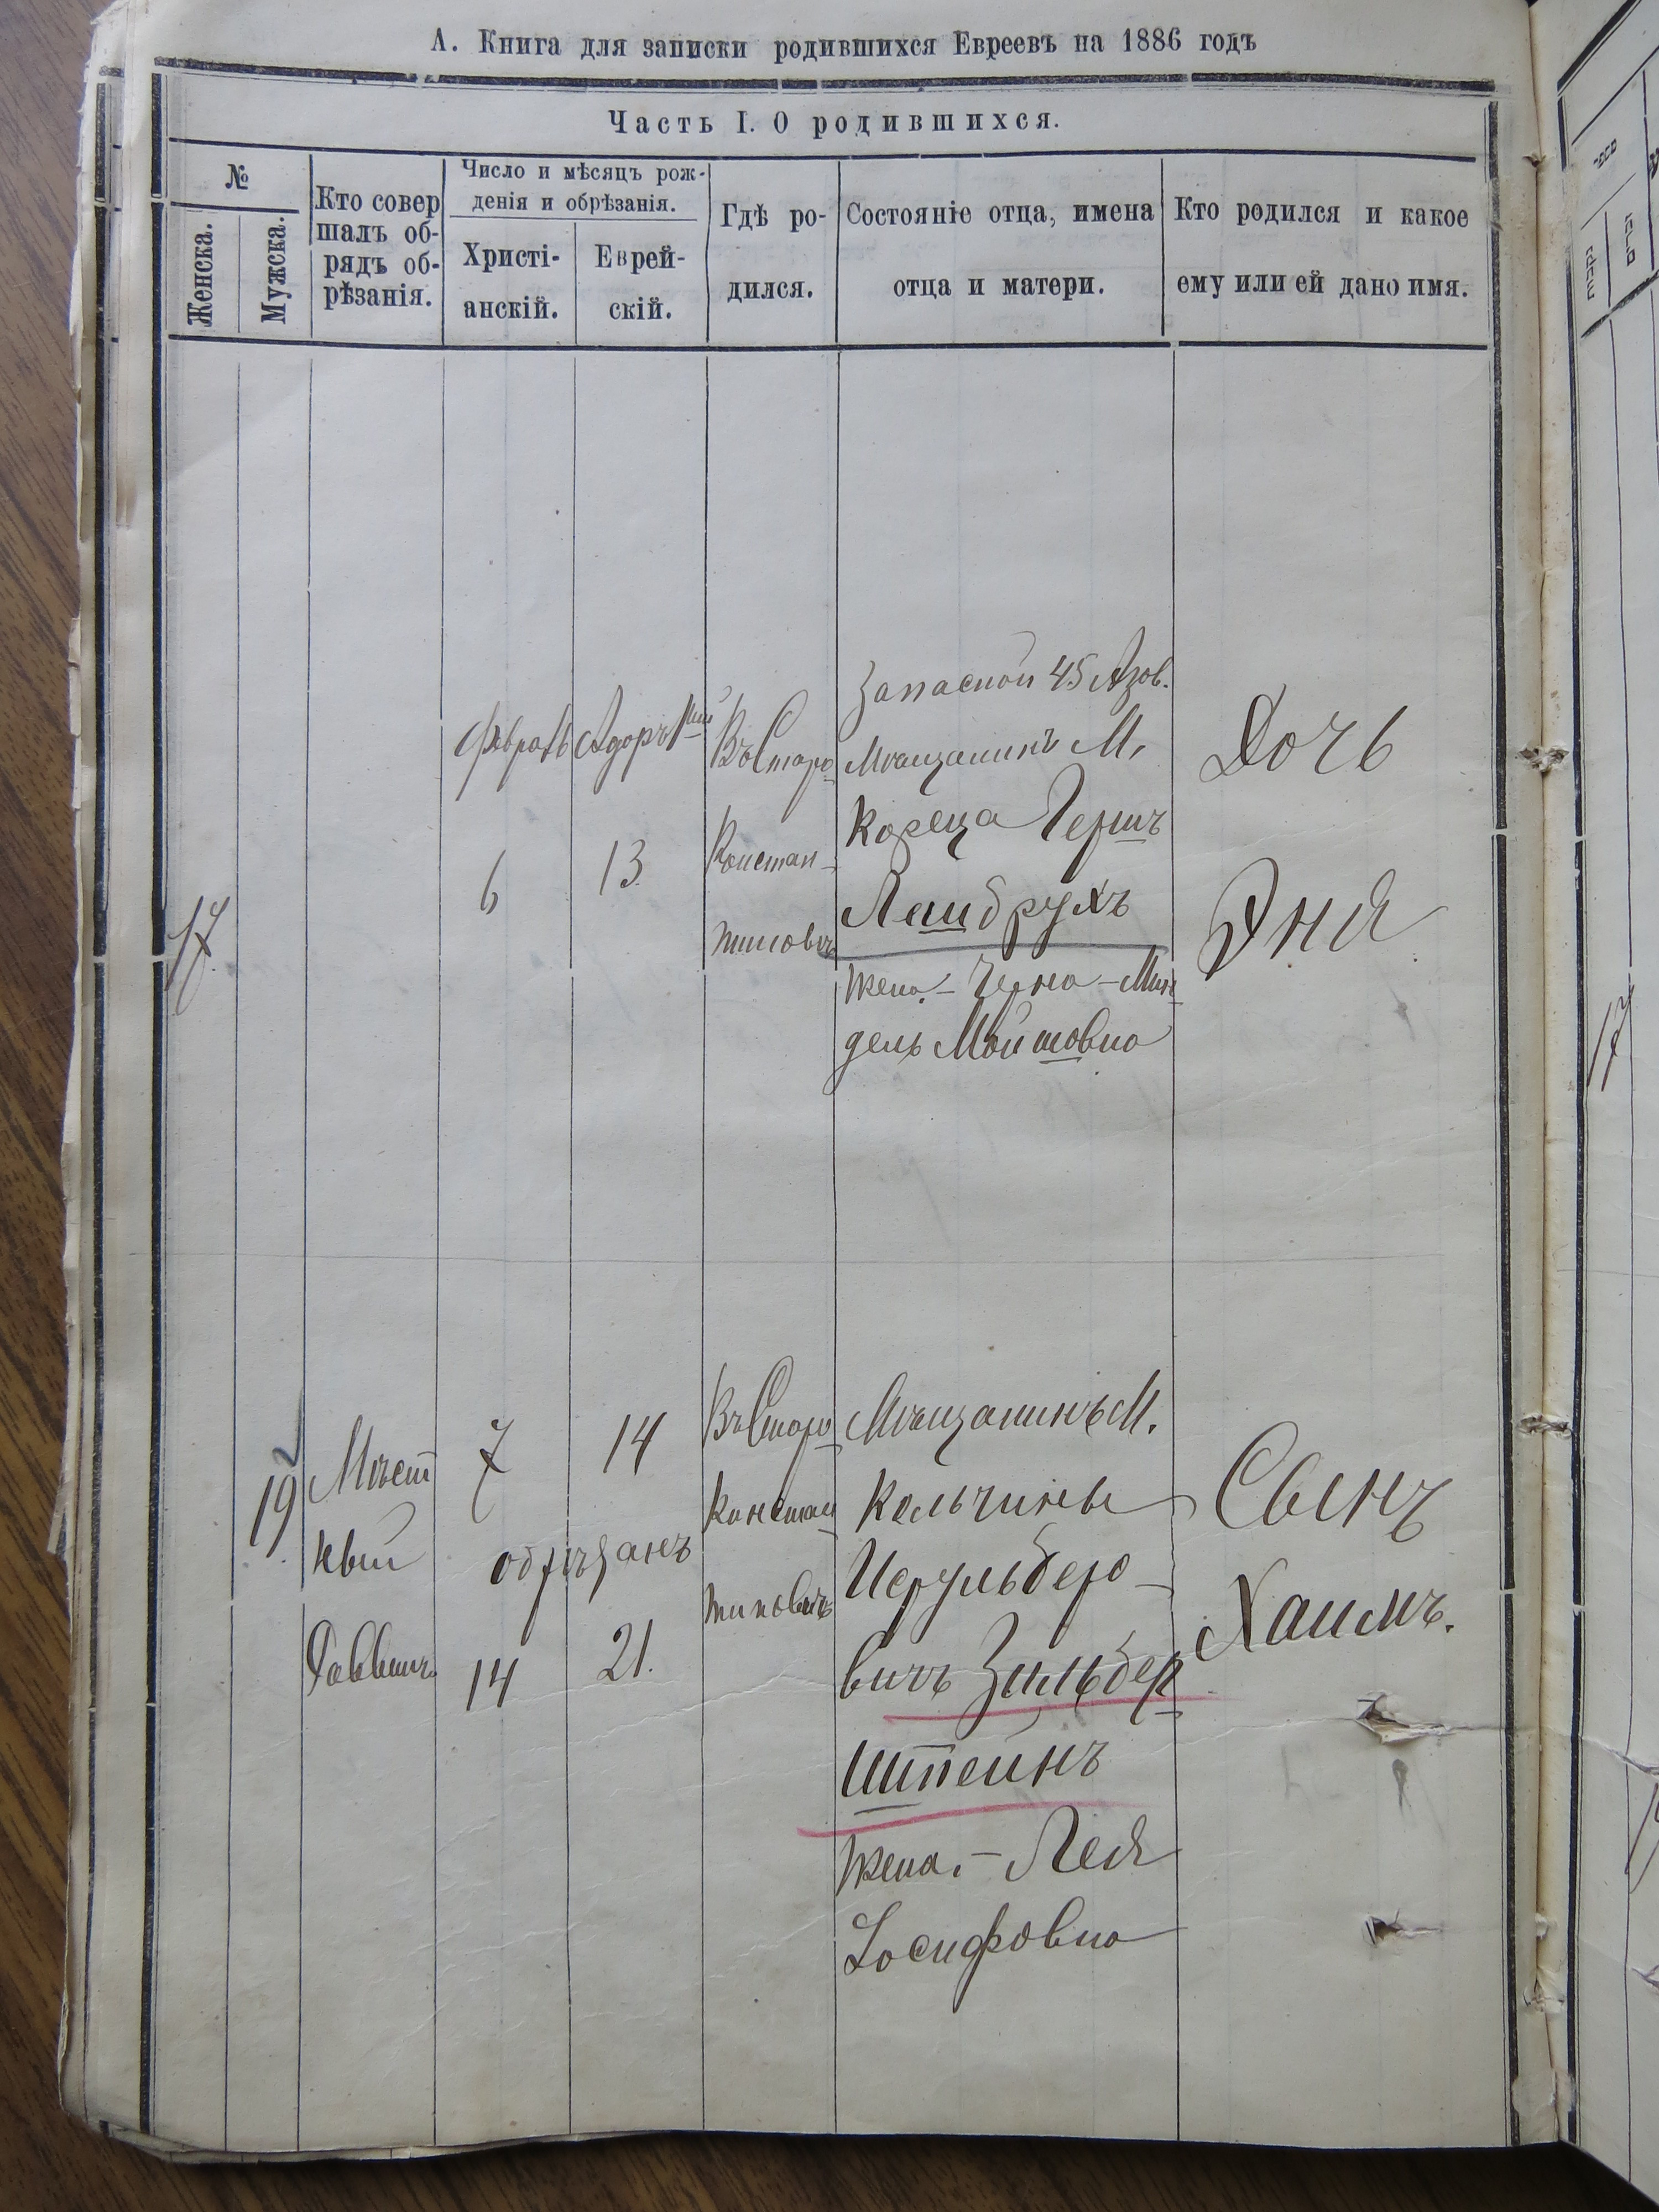 А. Книга для записки родившихся Евреевъ на 1886 годъ
Часть I. О родившихся.
№
Женска.
Мужска.
Кто совер
шалъ об-
рядъ об-
рѣзанія.
Число и мѣсяцъ рож-
денія и обрѣзанія.
Христі-
анскій.
Еврей-
скій.
Гдѣ ро-
дился.
Состояніе отца, имена
отца и матери.
Кто родился и какое
ему или ей дано имя.
17
Февраль
6
Адаръ
13
Въ Старо
Констан-
тиновѣ
Запасной 45 Азов.
Мѣщанинъ М.
Кореца Гершъ
Лешбрухъ
Жена - Черна - Мин
дель Мошковна
Дочь
Эня
19
Мѣст
ный
Раввинъ
7
обрѣзанъ
14
14
21.
Въ Старо
Констан
тиновѣ
Мѣщанинъ М.
Кольчины
Исруль Беро-
вичъ Зильбер
штейнъ
Жена. - Лея
Іосифовна
Сынъ
Хаимъ.
17